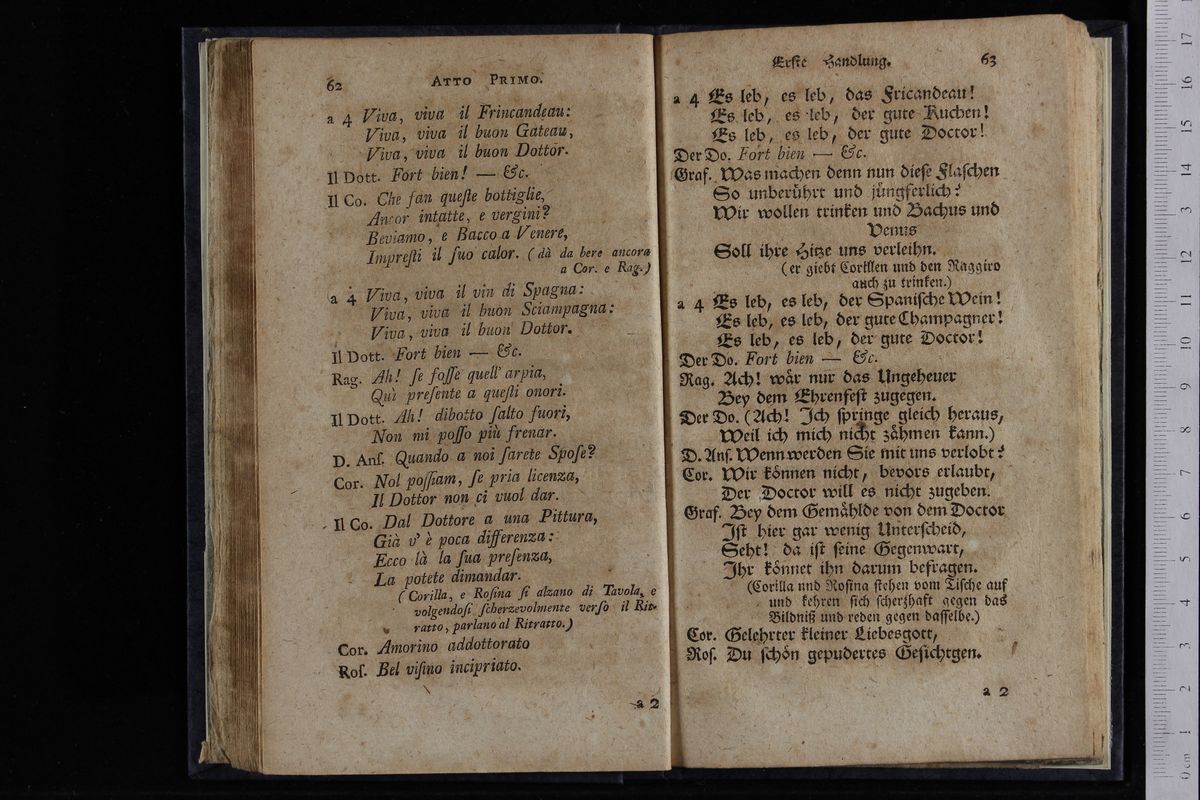 62 ATTO PRIMO.
a 4 Viva, viva il Frincandeau:
Viva, viva il buon Gateau,
Viva, viva il buon Dottor.
Il Dott. Fort bien! — &c.
Il Co. Che fan queſte bottiglie,
Ancor intatte, e vergini?
Beviamo, e Bacco a Venere,
Impreſti il ſuo calor. (dà da bere ancora
a Cor. e Rag.)
a 4 Viva, viva il vin di Spagna:
Viva, viva il buon Sciampagna:
Viva, viva il buon Dottor.
Il Dott. Fort bien — &c.
Rag. Ah! ſe foſſe quell' arpia,
Quì preſente a queſti onori.
Il Dott. Ah! dibotto ſalto fuori,
Non mi poſſo più frenar.
D. Anſ. Quando a noi ſarete Spoſe?
Cor. Nol poſſiam, ſe pria licenza,
Il Dottor non ci vuol dar.
Il Co. Dal Dottore a una Pittura,
Già v' è poca differenza:
Ecco là la ſua preſenza,
La potete dimandar.
(Corilla, e Roſina ſi alzano di Tavola, e
volgendoſi ſcherzevolmente verſo il Rit-
ratto, parlano al Ritratto.)
Cor. Amorino addottorato
Roſ. Bel viſino incipriato.
a 2
Erſte Handlung. 63
a 4 Es leb, es leb, das Fricandeau!
Es leb, es leb, der gute Kuchen!
Es leb, es leb, der gute Doctor!
Der Do. Fort bien — &c.
Graf. Was machen denn nun dieſe Flaſchen
So unberührt und jüngferlich?
Wir wollen trinken und Bachus und
Venus
Soll ihre Hitze uns verleihn.
(er giebt Corillen und den Raggiro
auch zu trinken.)
a 4 Es leb, es leb, der Spaniſche Wein!
Es leb, es leb, der gute Champagner!
Es leb, es leb, der gute Doctor!
Der Do. Fort bien — &c.
Rag. Ach! wär nur das Ungeheuer
Bey dem Ehrenfeſt zugegen.
Der Do. (Ach! Ich ſpringe gleich heraus,
Weil ich mich nicht zähmen kann.)
D. Anſ. Wenn werden Sie mit uns verlobt?
Cor. Wir können nicht, bevors erlaubt,
Der Doctor will es nicht zugeben.
Graf. Bey dem Gemählde von dem Doctor
Iſt hier gar wenig Unterſcheid,
Seht! da iſt ſeine Gegenwart,
Ihr könnet ihn darum befragen.
(Corilla und Roſina ſtehen vom Tiſche auf
und kehren ſich ſcherzhaft gegen das
Bildniß und reden gegen daſſelbe.)
Cor. Gelehrter kleiner Liebesgott,
Roſ. Du ſchön gepudertes Geſichtgen.
a 2
0 cm 1 2 3 4 5 6 7 8 9 10 11 12 13 14 15 16 17